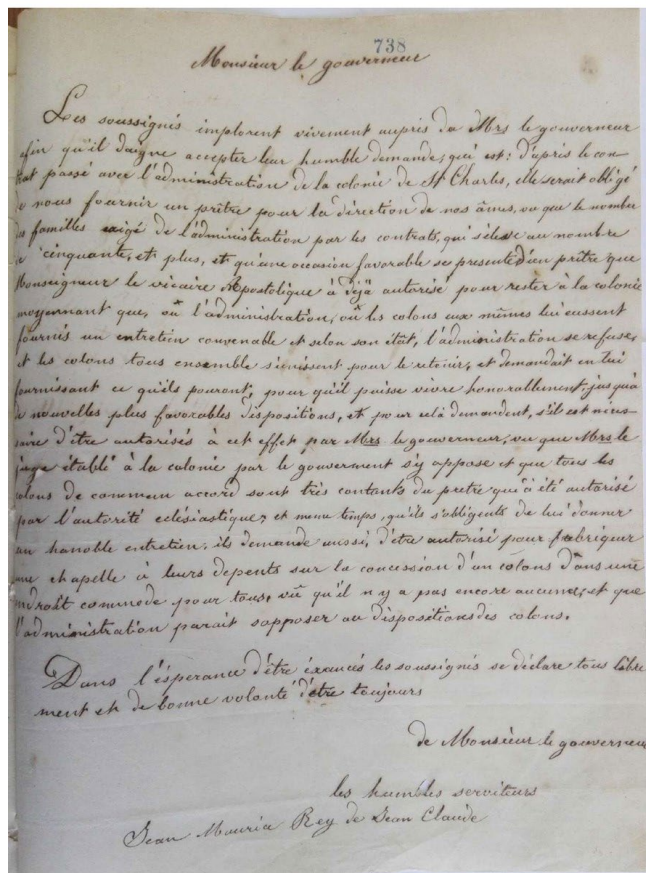 738
Monsieur le gouverneur
Les soussignés implorent vivement aupris da Mrs le gouverneur
afin qu'il daigne accepter leur humble demande; qui est: d'après le con-
trat passé avec l'administration de la colonie de St Charles, elle serait obligé
de nous fournir un prêtre pour la direction de nos âmes, vu que le nombre
des familles exigé de l'administration par les contrats, qui s'éleve au nombre
de cinquante, et plus, et qu'une occasion favorable se presente d'un prêtre que
Monseigneur le vicaire Apostolique à déjà autorisé pour rester à la colonie
moyennant que, où l'administration, où les colons eux mêmes lui eussent
fournis un entretien convenable et selon son état, l'administration se refuse,
et les colons tous ensemble s'unissent pour le retenir, et demandait en lui
fournissant ce qu'ils pouront, pour qu'il puisse vivre honorablement, jusqu'à
de nouvelles plus favorables dispositions, et pour celà demandent, s'il est néces-
saire d'être autorisés à cet effet par Mrs le gouverneur, vu que Mrs le
juge établé à la colonie par le gouverment s'y appose et que tous les
colons de commun accord sont très contants du pretre qui à été autorisé
par l'autorité eclésiastique, et meme temps, qu'ils s'obligents de lui donner
un hanoble entretien. ils demande aussi, d'être autorisé pour fabriquer
une chapelle à leurs depents sur la concission d'un colons dans une
endroit commode pour tous, vû qu'il n y a pas encore aucune, et que
l'administration parait sapposer au dispositions des colons.
Dans l'ésperance d'être éxaucés les soussignés se déclare tous libre
ment et de bonne volonté d'être toujours
de Monsieur le gouverneur
les humbles serviteurs
Jean Mouria Rey de Jean Claude